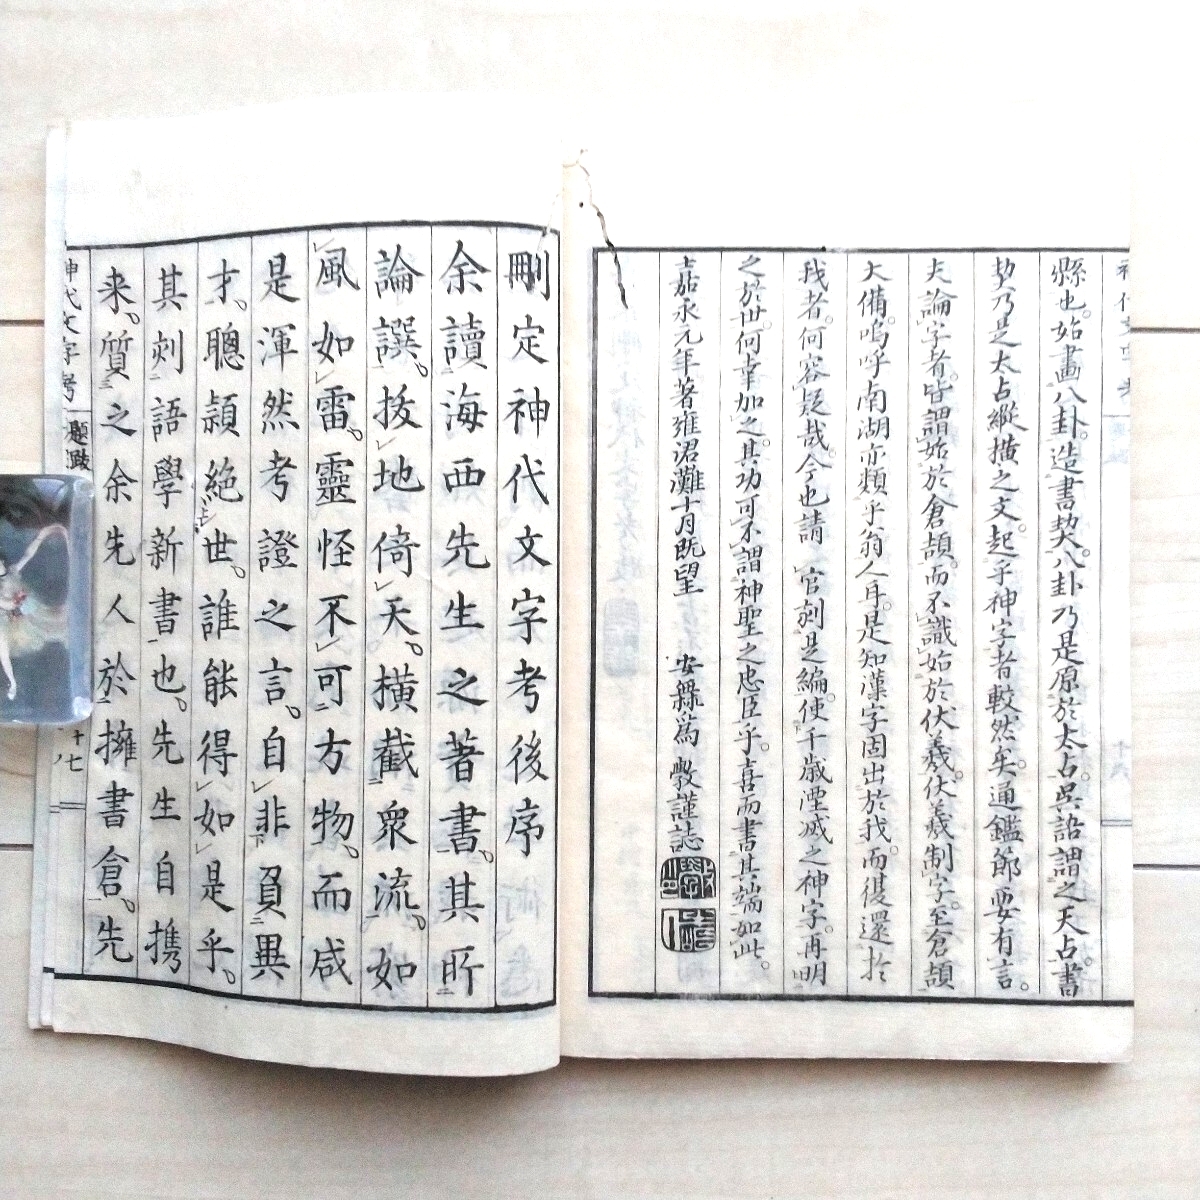 縣也。始畫八卦。造書契。八卦乃是原於太占。吳語謂之天占書
契乃是太占縱橫之文。起乎神字者較然矣。通鑑節要有言。
夫論字者。皆謂始於倉頡。而不識始於伏羲。伏羲制字。至倉頡
大備。嗚呼南湖亦類乎翁人耳。是知漢字固出於我。而復還於
我者。何容疑哉。今也請官刻是編。使千歲湮滅之神字。再明
之於世。何幸加之。其功可不謂神聖之忠臣乎。喜而書其端如此。
嘉永元年著雍涒灘十月既望 安爲敬謹誌
刪定神代文字考後序
余讀海西先生之著書。其所
論譔。拔地倚天。橫截衆流。如
風如雷。靈怪不可方物。而咸
是渾然考證之言。自非負異
才。聰穎絶世。誰能得如是乎。
其刻語學新書也。先生自携
来。質之余先人於擁書倉。先
神代文字考 題跋
十七